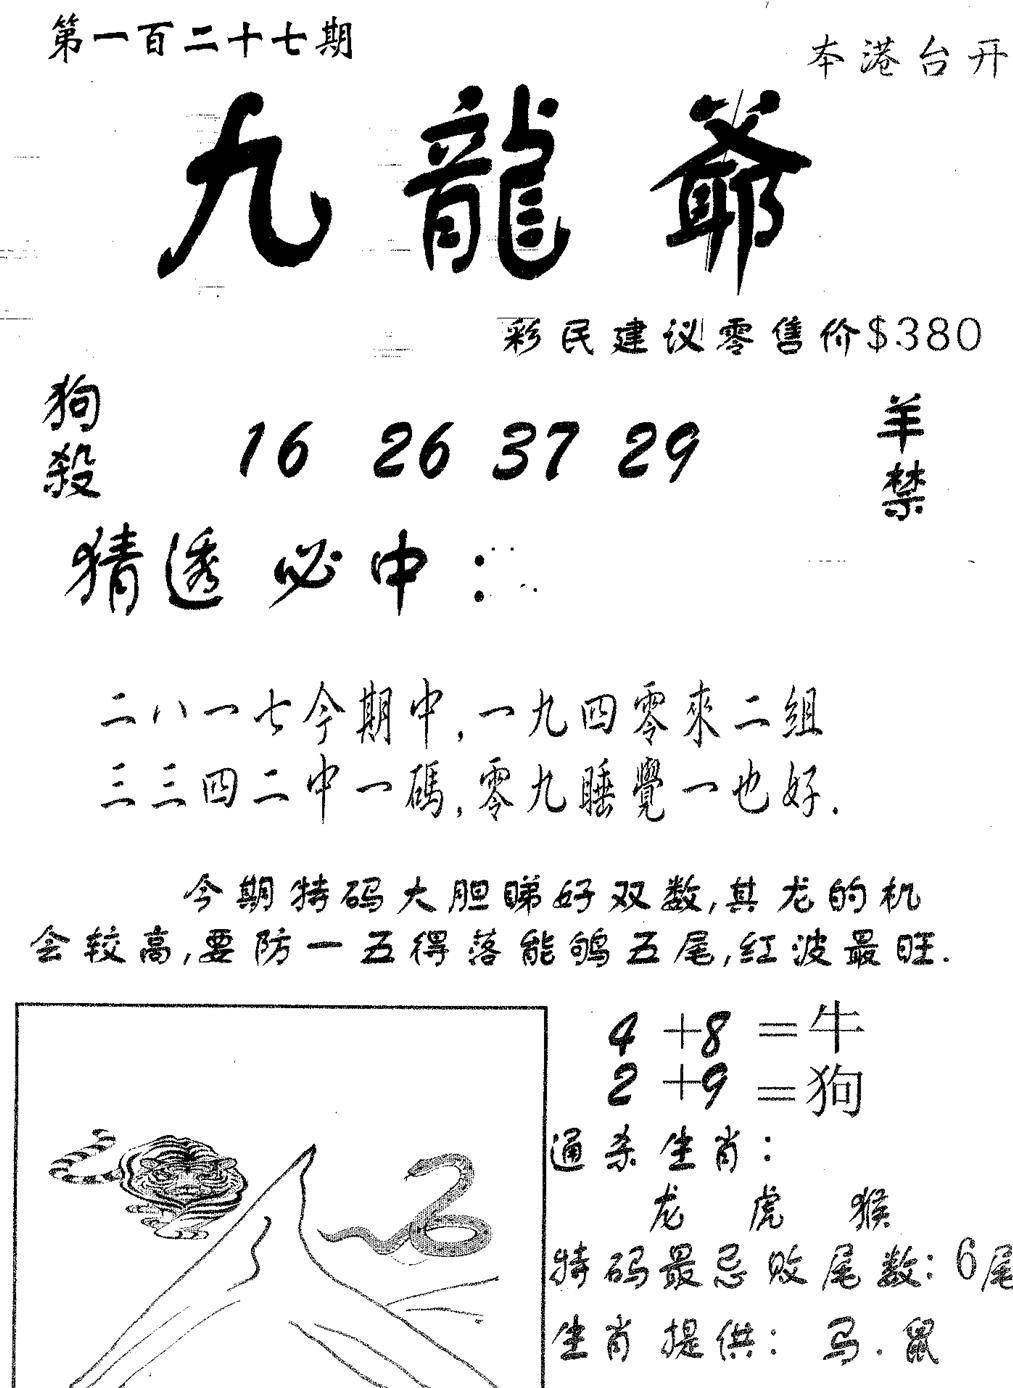 第一百二十七期
本港台开
九龍爺
彩民建议零售价$380
狗殺
16 26 37 29
羊禁
猜透必中：
二八一七今期中,一九四零來二組
三三四二中一碼,零九睡覺一也好.
今期特码大胆睇好双数,其龙的机
会较高,要防一五得落能鸲五尾,红波最旺.
4+8=牛
2+9=狗
通杀生肖：
龙 虎 猴
特码最忌败尾数：6尾
生肖提供：马.鼠